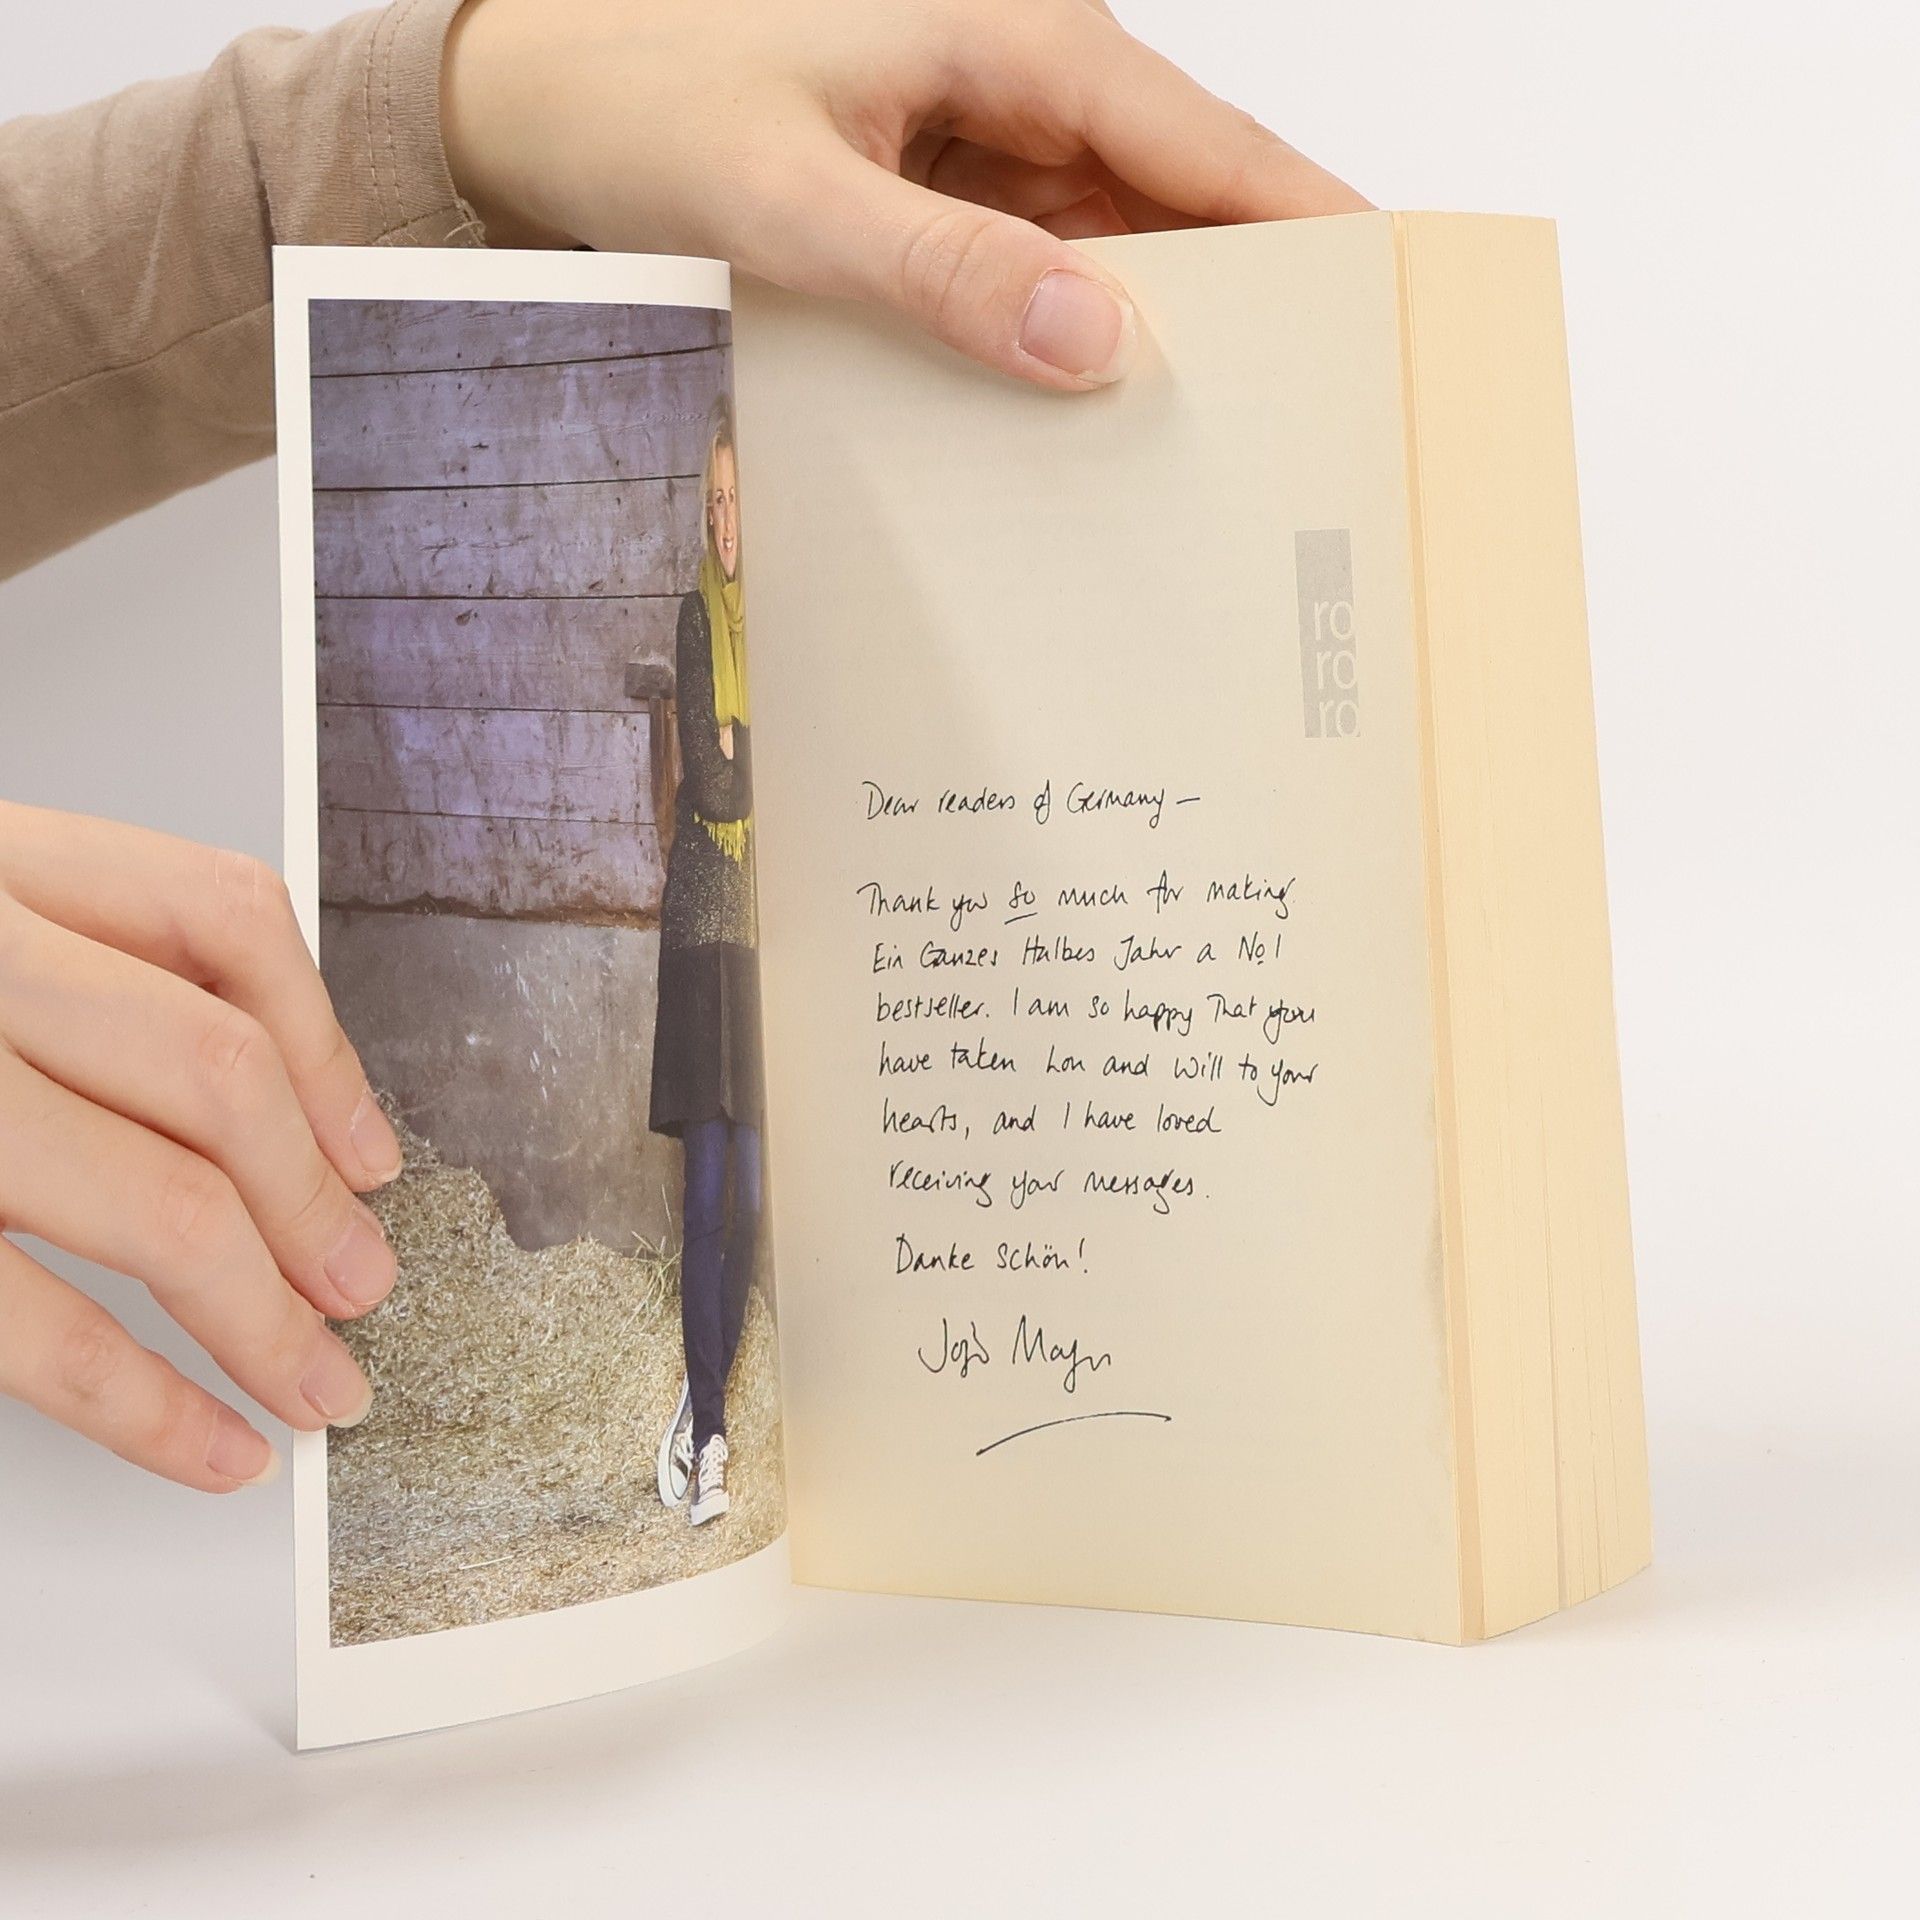 ro
ro
ro
Dear readers of Germany —
Thank you so much for making
Ein Ganzes Halbes Jahr a No 1
bestseller. I am so happy that you
have taken Lou and Will to your
hearts, and I have loved
receiving your messages.
Danke Schön!
Jojo Moyes